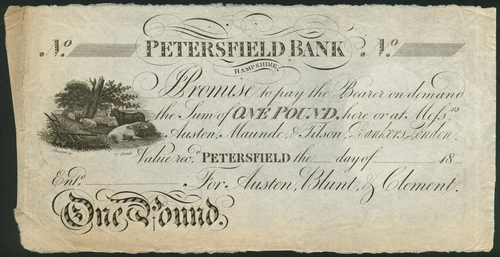 No No
PETERSFIELD BANK
HAMPSHIRE.
I Promise to pay the Bearer on demand
the Sum of ONE POUND, here or at Messrs
Austen, Maunde, & Tilson, Bankers, London.
Value recd. PETERSFIELD the day of 18
Entd. For Austen, Blunt, & Clement.
One Pound.